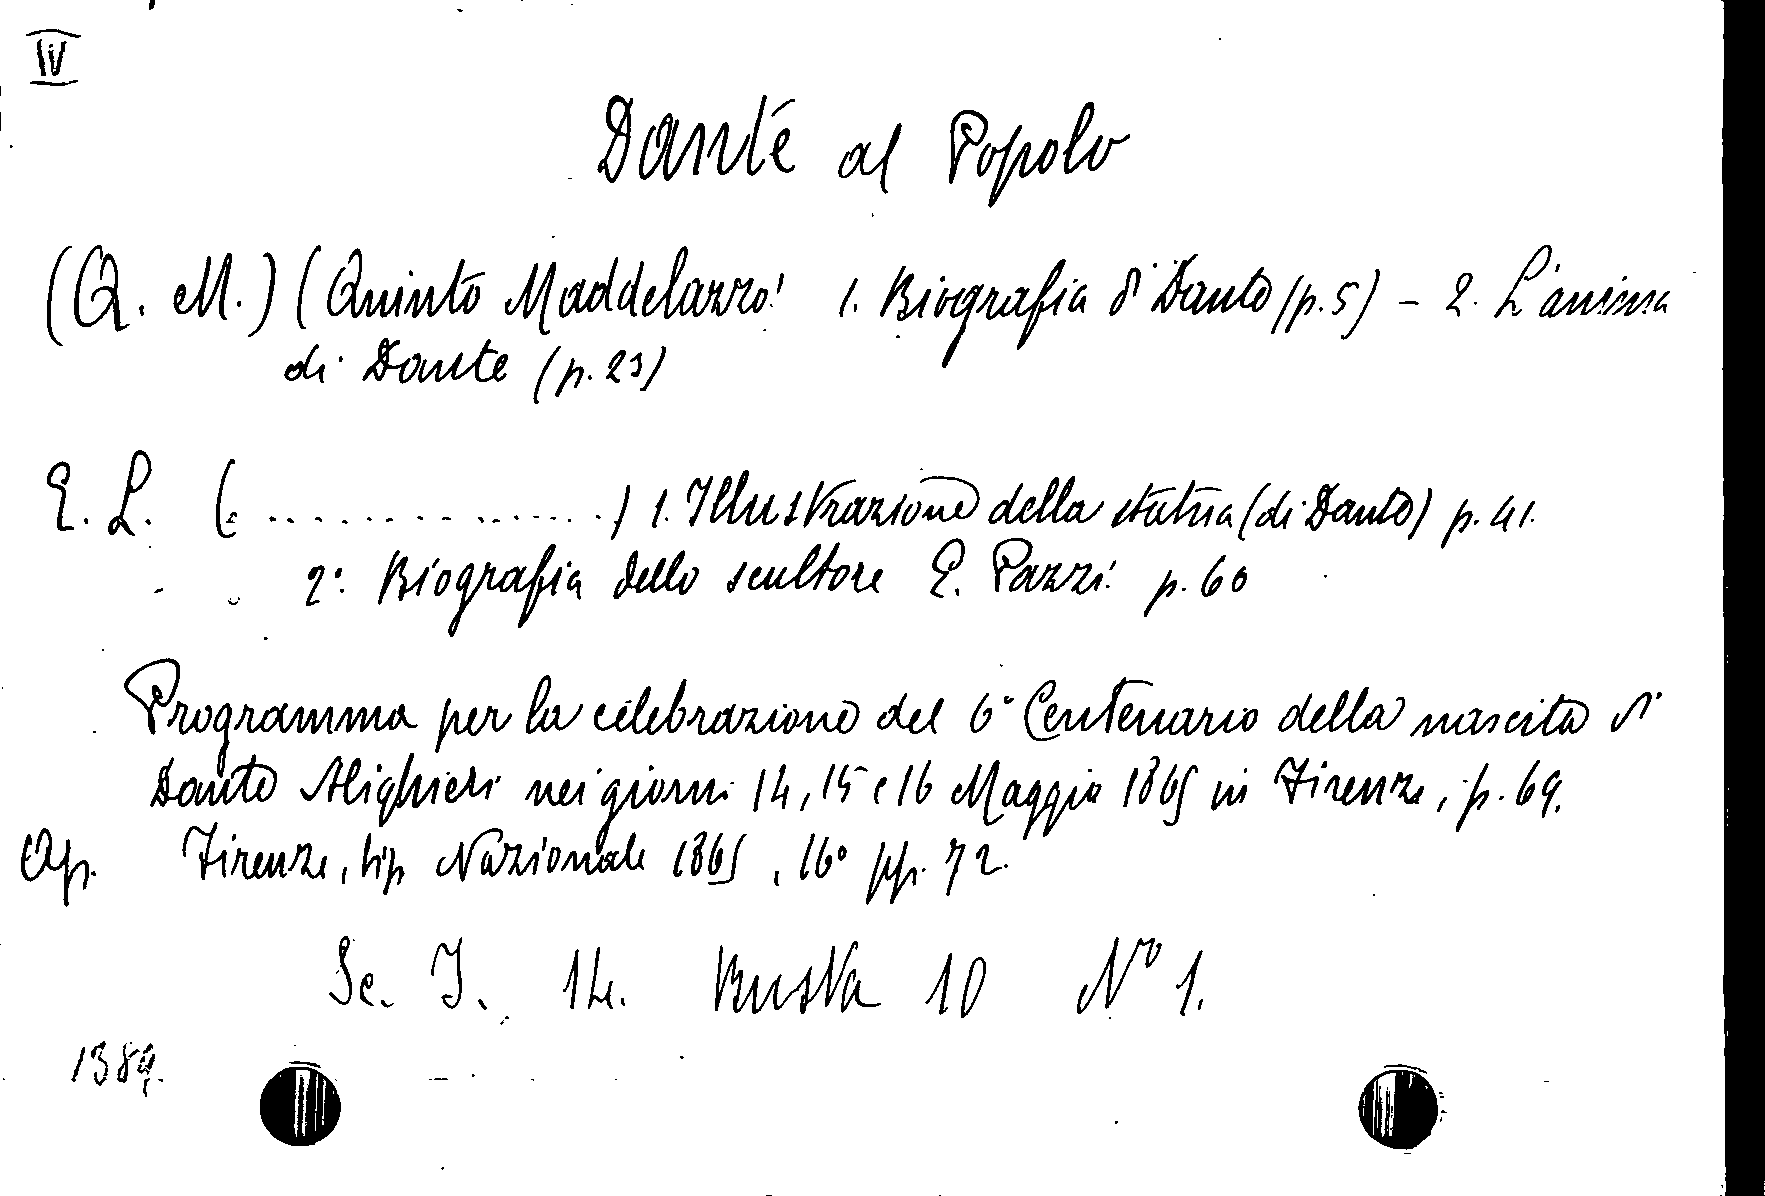 IV
Dante al Popolo
(Q. M.) (Quinto Maddelozzo! 1. Biografia di Dante (p. 5) – 2. L'anima
di Dante (p. 23)
E. L. (................) 1. Illustrazione della statua (di Dante) p. 41.
2°. Biografia dello scultore E. Pazzi p. 60
Programma per la celebrazione del 6° Centenario della nascita di
Dante Alighieri nei giorni 14, 15 e 16 Maggio 1865 in Firenze, p. 69.
Op. Firenze, tip Nazionale 1865, 16° pp. 72.
Sc. I. 14. Busta 10 N° 1.
1389.